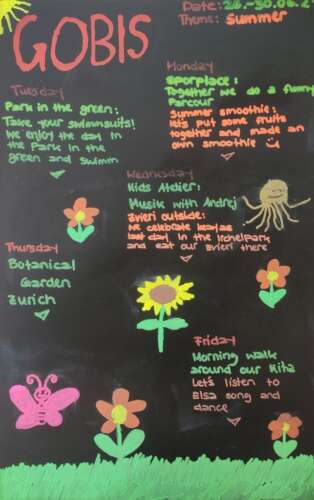 GOBIS
Date: 26.-30.06.2
Theme: Summer
Monday
Sporplace:
Together we do a funny
Parcour
Summer smoothie:
let's put some fruits
together and made an
own smoothie
Tuesday
Park in the green:
Take your swimmsuits!
We enjoy the day in
the Park in the
green and swimm
Wednesday
Kids Atelier:
Musik with Andrej
Zvieri outside:
We celebrate
last day in the Irchelpark
and eat our zvieri there
Thursday
Botanical
Garden
Zurich
Friday
Morning walk
around our Kita
Let's listen to
Elsa song and
dance